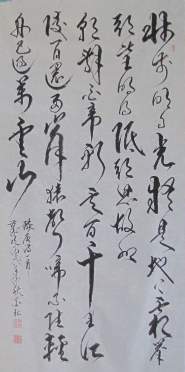 牀前明月光疑是地上霜舉
頭望明月低頭思故鄉
朝辭白帝彩雲間千里江
陵一日還兩岸猿聲啼不住輕
舟已過萬重山